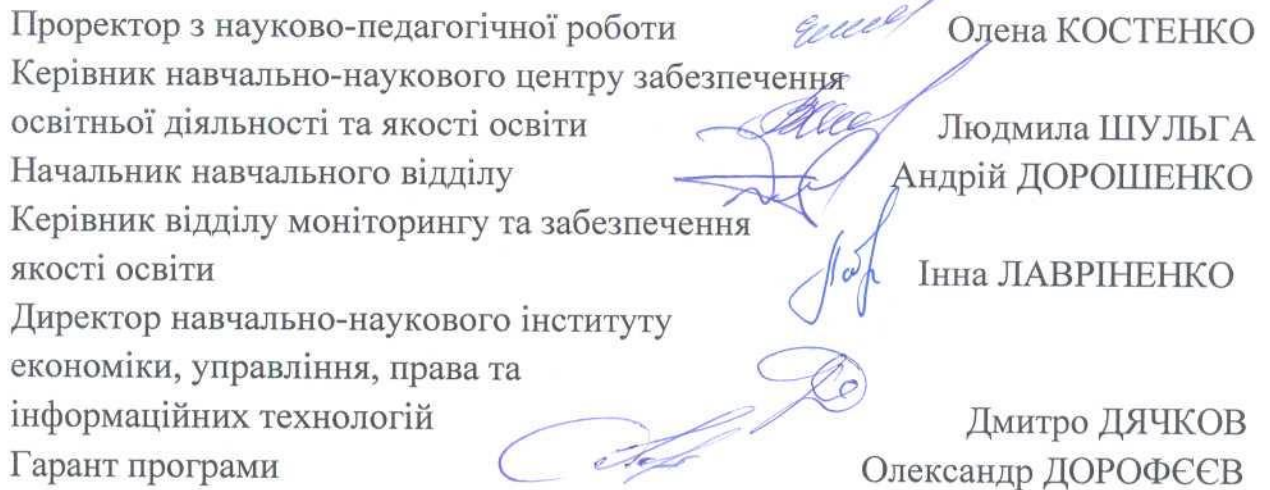 Проректор з науково-педагогічної роботи Олена КОСТЕНКО
Керівник навчально-наукового центру забезпечення
освітньої діяльності та якості освіти Людмила ШУЛЬГА
Начальник навчального відділу Андрій ДОРОШЕНКО
Керівник відділу моніторингу та забезпечення
якості освіти Інна ЛАВРІНЕНКО
Директор навчально-наукового інституту
економіки, управління, права та
інформаційних технологій Дмитро ДЯЧКОВ
Гарант програми Олександр ДОРОФЄЄВ